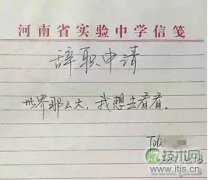 河南省实验中学信笺
辞职申请
世界那么大，我想去看看。
技术网
www.itjs.cn